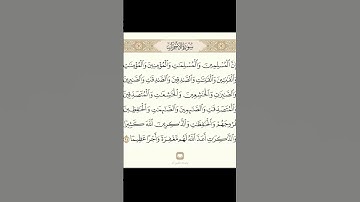 سورة الأحزاب
إِنَّ ٱلْمُسْلِمِينَ وَٱلْمُسْلِمَٰتِ وَٱلْمُؤْمِنِينَ وَٱلْمُؤْمِنَٰتِ
وَٱلْقَٰنِتِينَ وَٱلْقَٰنِتَٰتِ وَٱلصَّٰدِقِينَ وَٱلصَّٰدِقَٰتِ وَٱلصَّٰبِرِينَ
وَٱلصَّٰبِرَٰتِ وَٱلْخَٰشِعِينَ وَٱلْخَٰشِعَٰتِ وَٱلْمُتَصَدِّقِينَ
وَٱلْمُتَصَدِّقَٰتِ وَٱلصَّٰٓئِمِينَ وَٱلصَّٰٓئِمَٰتِ وَٱلْحَٰفِظِينَ
فُرُوجَهُمْ وَٱلْحَٰفِظَٰتِ وَٱلذَّٰكِرِينَ ٱللَّهَ كَثِيرًا
وَٱلذَّٰكِرَٰتِ أَعَدَّ ٱللَّهُ لَهُم مَّغْفِرَةً وَأَجْرًا عَظِيمًا